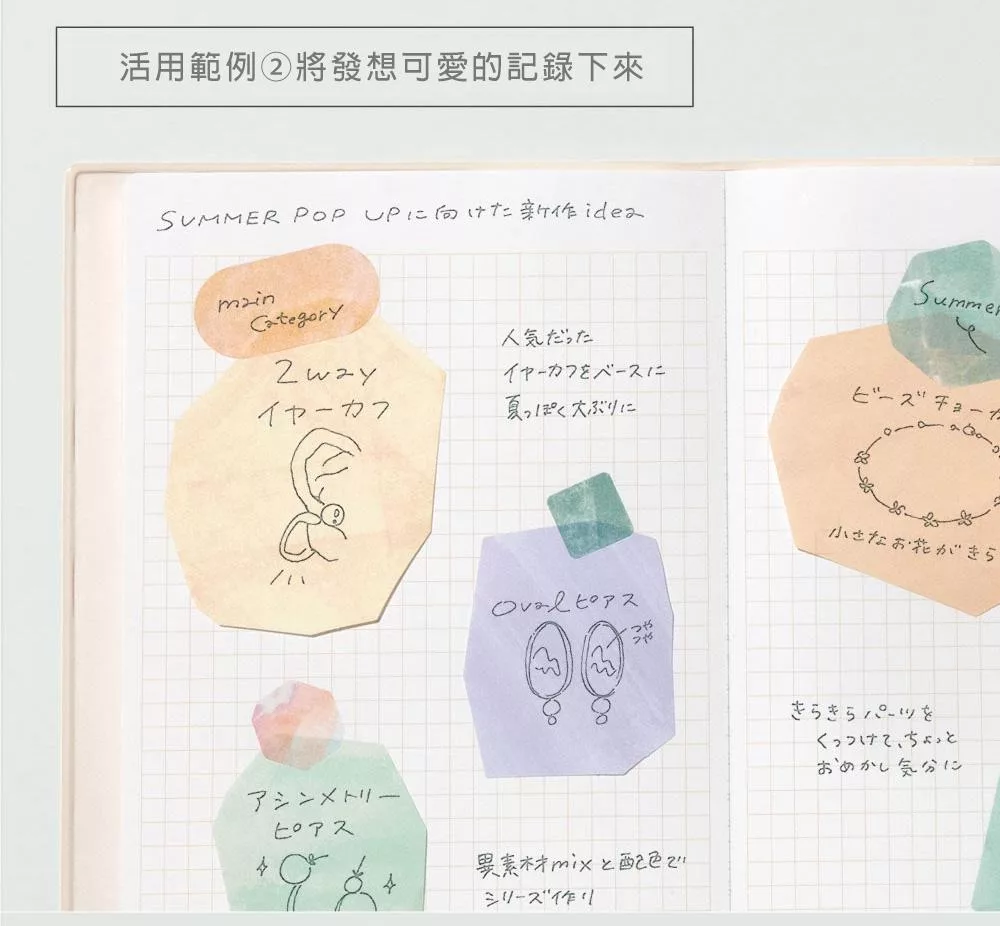 活用範例②將發想可愛的記錄下來
SUMMER POP UPに向けた新作idea
main
Category
2way
イヤーカフ
人気だった
イヤーカフをベースに
夏っぽく大ぶりに
Ovalピアス
つや
つや
アシンメトリー
ピアス
異素材mixと配色で
シリーズ作り
Summer
ビーズチョーカ
小さなお花がきら
きらきらパーツを
くっつけて、ちょっと
おめかし気分に